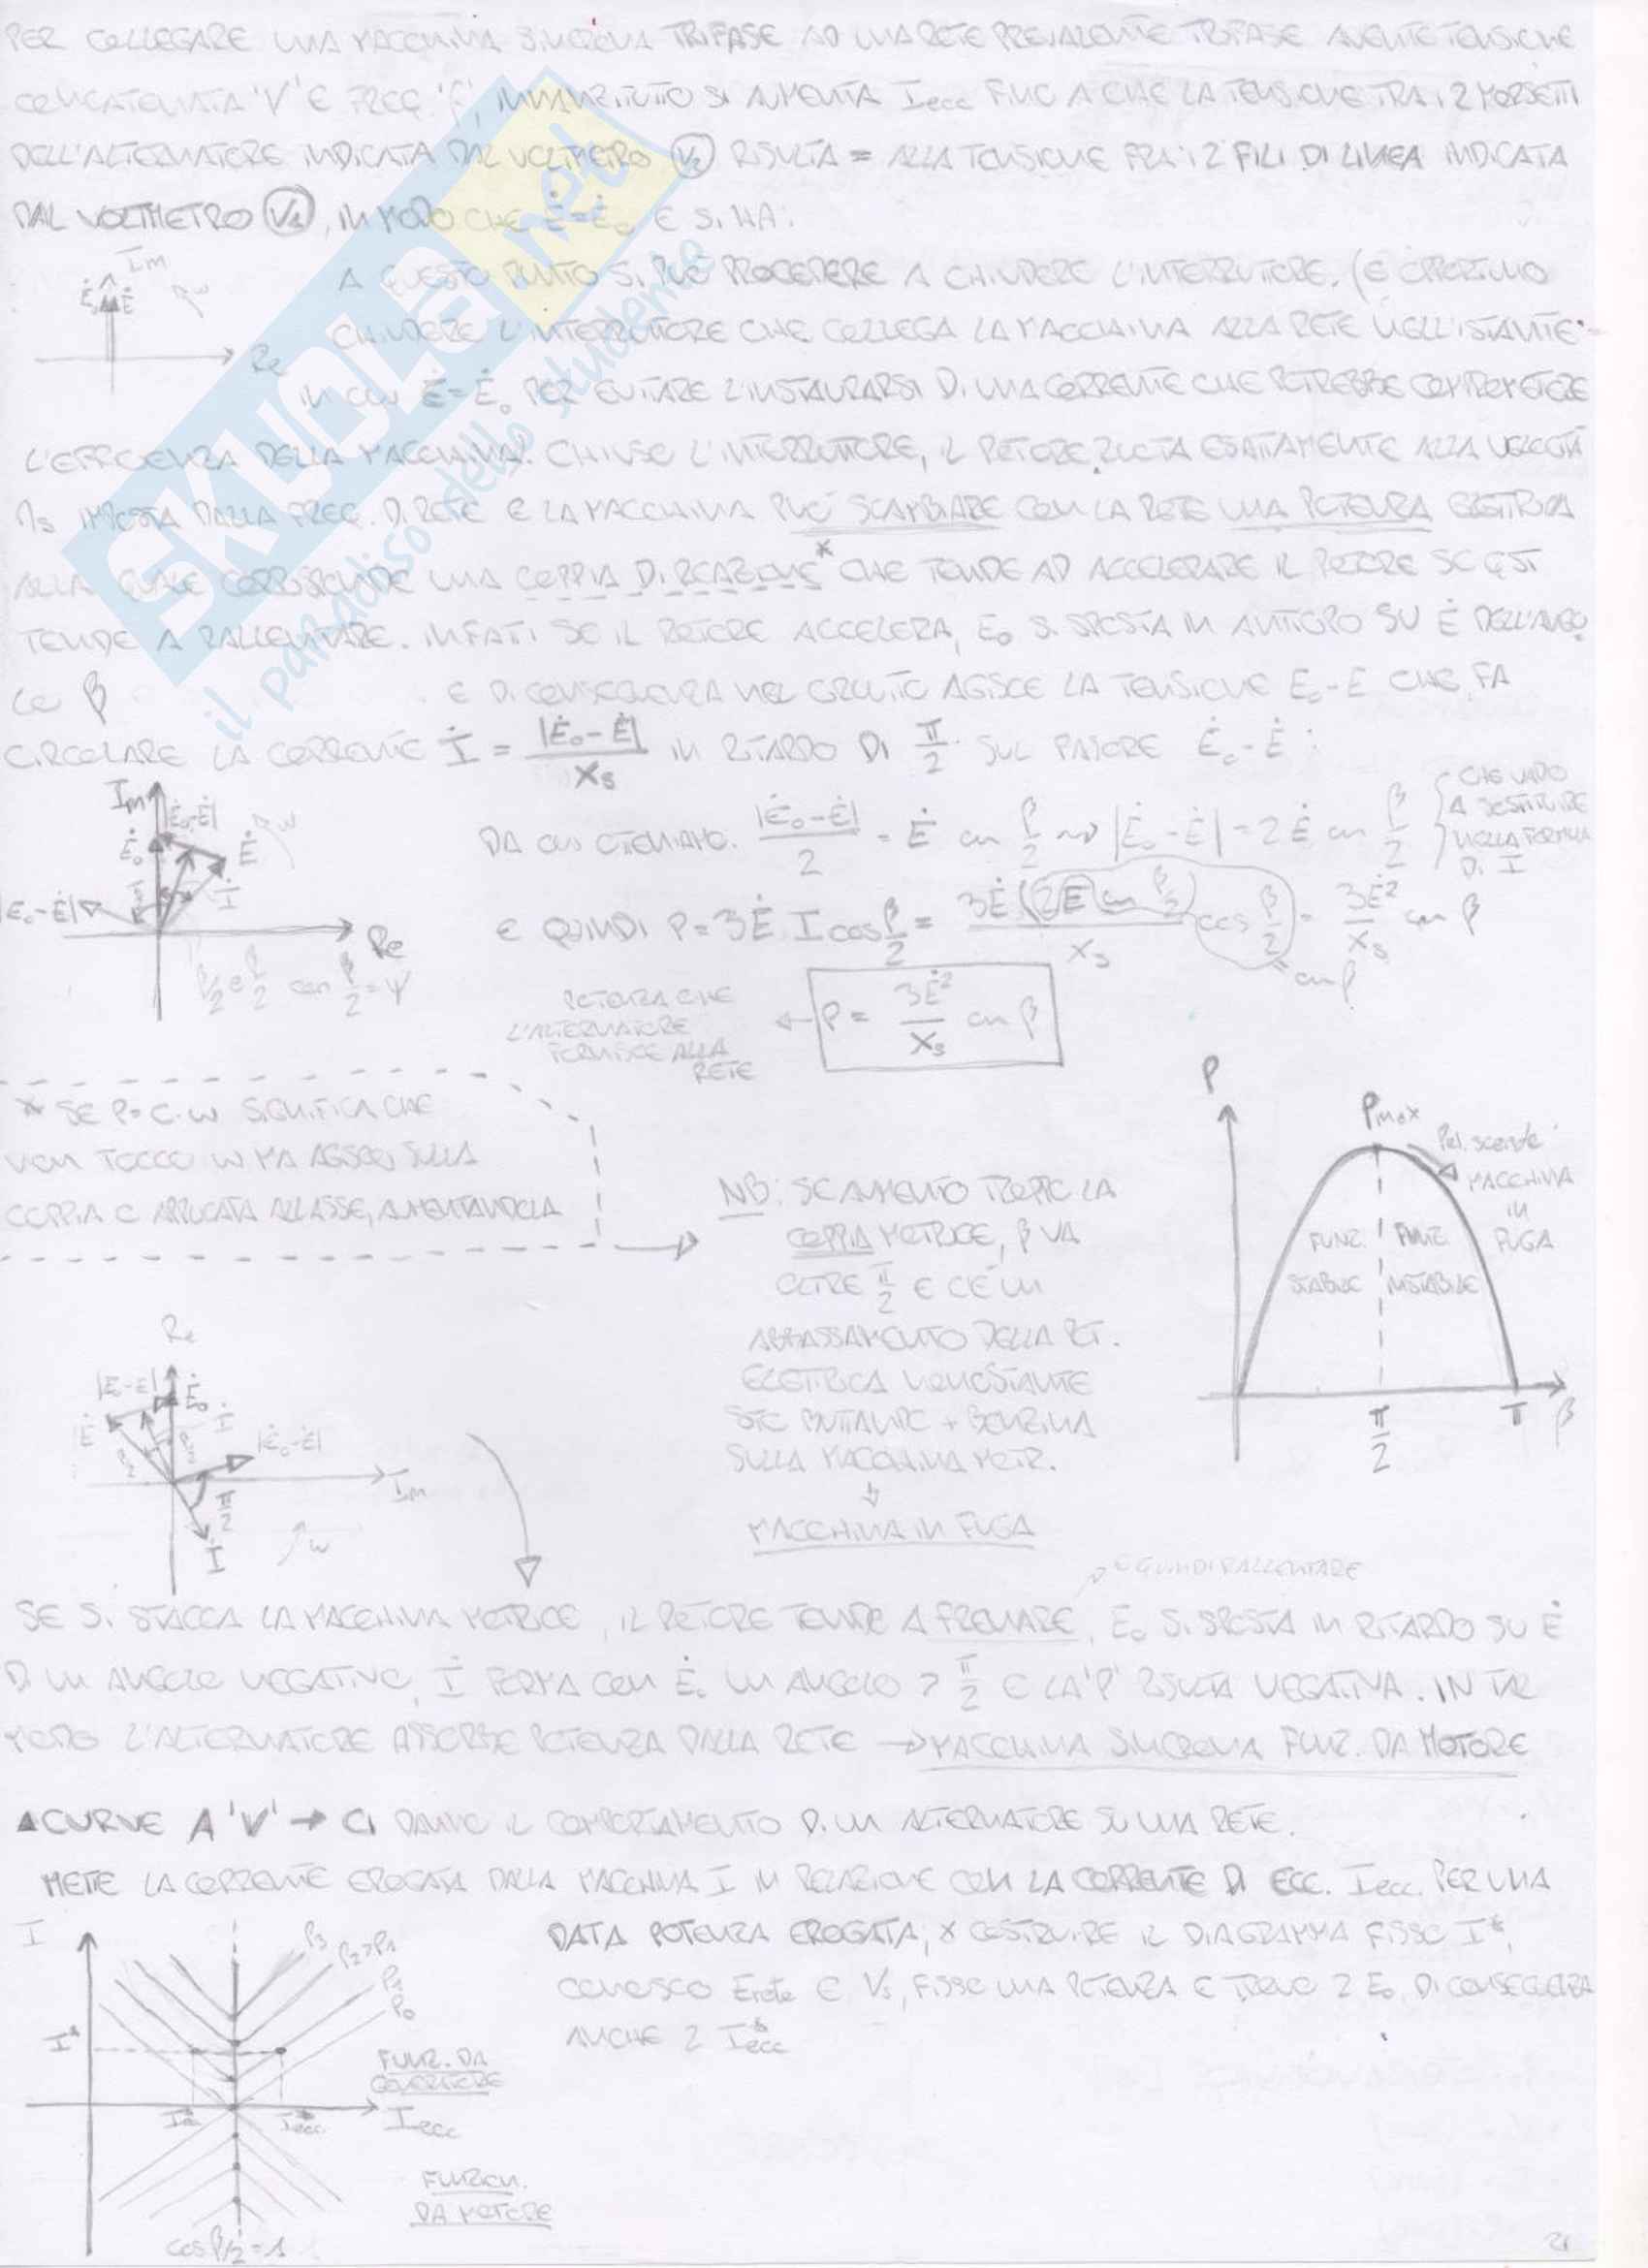 PER COLLEGARE UNA MACCHINA SINCRONA TRIFASE AD UNA RETE PREVALENTE TRIFASE AVENTE TENSIONE
CONCATENATA 'V' E FREQ. 'f', INNANZITUTTO SI AUMENTA Iecc FINO A CHE LA TENSIONE TRA I 2 MORSETTI
DELL'ALTERNATORE INDICATA DAL VOLTMETRO (V2) RISULTA = ALLA TENSIONE FRA I 2 FILI DI LINEA INDICATA
DAL VOLTMETRO (V1), IN MODO CHE Ė=Ė₀ E SI HA:
Im
Ė₀ Ė ω
Re
A QUESTO PUNTO SI PUÒ PROCEDERE A CHIUDERE L'INTERRUTTORE. (È OPPORTUNO
CHIUDERE L'INTERRUTORE CHE COLLEGA LA MACCHINA ALLA RETE NELL'ISTANTE
IN CUI Ė=Ė₀ PER EVITARE L'INSTAURARSI DI UNA CORRENTE CHE POTREBBE COMPROMETTERE
L'EFFICIENZA DELLA MACCHINA). CHIUSO L'INTERRUTTORE, IL ROTORE RUOTA ESATTAMENTE ALLA VELOCITÀ
ns IMPOSTA DALLA FREQ. DI RETE E LA MACCHINA PUÒ SCAMBIARE CON LA RETE UNA POTENZA ELETTRICA
ALLA QUALE CORRISPONDE UNA COPPIA DI REAZIONE* CHE TENDE AD ACCELERARE IL ROTORE SE QST
TENDE A RALLENTARE. INFATTI SE IL ROTORE ACCELERA, E₀ SI SPOSTA IN ANTICIPO SU Ė DELL'ANGO
LO β E DI CONSEGUENZA NEL CIRCUITO AGISCE LA TENSIONE E₀-E CHE FA
CIRCOLARE LA CORRENTE İ = |Ė₀-Ė| / Xs IN RITARDO DI π/2 SUL FASORE Ė₀-Ė :
Im |Ė₀-Ė|
Ė₀ Ė ω
İ
|Ė₀-Ė|
Re
β/2 e β/2 con β/2=ψ
DA CUI OTTENIAMO: |Ė₀-Ė| / 2 = Ė sen β/2 → |Ė₀-Ė| = 2Ė sen β/2
CHE VADO
A SOSTITUIRE
NELLA FORMULA
DI I
E QUINDI P = 3Ė I cos β/2 = 3Ė (2E sen β/2) cos β/2 / Xs = 3Ė² / Xs sen β
= sen β
POTENZA CHE
L'ALTERNATORE
FORNISCE ALLA
RETE
P = 3Ė² / Xs sen β
* SE P=C·ω SIGNIFICA CHE
NON TOCCO ω MA AGISCO SULLA
COPPIA C APPLICATA ALL'ASSE, AUMENTANDOLA
NB: SE AUMENTO TROPPO LA
COPPIA MOTRICE, β VA
OLTRE π/2 E C'È UN
ABBASSAMENTO DELLA POT.
ELETTRICA NONOSTANTE
STO BUTTANDO + BENZINA
SULLA MACCHINA MOTR.
MACCHINA IN FUGA
P
Pmax
MACCHINA
IN
FUGA
FUNZ. STABILE
FUNZ. INSTABILE
π/2 π β
Re
|E-E| Ė₀
Ė İ |Ė₀-Ė|
Im
π/2
ω
İ
E QUINDI RALLENTARE
SE SI STACCA LA MACCHINA MOTRICE, IL ROTORE TENDE A FRENARE, E₀ SI SPOSTA IN RITARDO SU Ė
DI UN ANGOLO NEGATIVO, İ FORMA CON Ė₀ UN ANGOLO > π/2 E LA 'P' RISULTA NEGATIVA. IN TAL
MODO L'ALTERNATORE ASSORBE POTENZA DALLA RETE → MACCHINA SINCRONA FUNZ. DA MOTORE
▲CURVE A 'V' → CI DANNO IL COMPORTAMENTO DI UN ALTERNATORE SU UNA RETE.
METTE LA CORRENTE EROGATA DALLA MACCHINA I IN RELAZIONE CON LA CORRENTE DI ECC. Iecc. PER UNA
DATA POTENZA EROGATA; X COSTRUIRE IL DIAGRAMMA FISSO I*,
CONOSCO Erete E Vs, FISSO UNA POTENZA E TROVO 2 E₀, DI CONSEGUENZA
ANCHE 2 I*ecc
I
P3
P2>P1
P1
P0
I*
FUNZ. DA
GENERATORE
Iecc
FUNZION.
DA MOTORE
cos β/2 = 1
21
SKUOLA.net
il paradiso dello studente